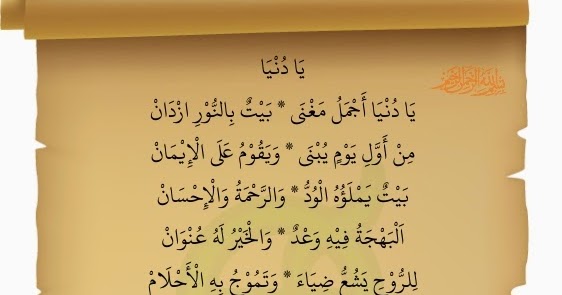 يَا دُنْيَا
يَا دُنْيَا أَجْمَلُ مَغْنَى * بَيْتٌ بِالنُّوْرِ ازْدَانْ
مِنْ أَوَّلِ يَوْمٍ يُبْنَى * وَيَقُوْمُ عَلَى الْإِيْمَانْ
بَيْتٌ يَمْلَؤُهُ الْوُدُّ * وَالرَّحْمَةُ وَالْإِحْسَانْ
اَلْبَهْجَةُ فِيْهِ وَعْدٌ * وَالْخَيْرُ لَهُ عُنْوَانْ
لِلرُّوْحِ يَشُعُّ ضِيَاءَ * وَتَمُوْجُ بِهِ الْأَحْلَامْ